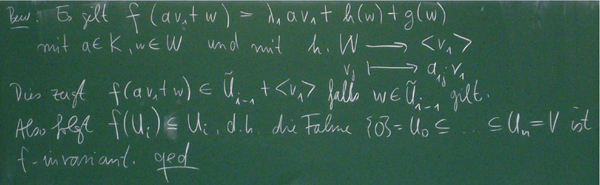 Bew. Es gilt f(av₁+w) = λ₁av₁ + h(w) + g(w)
mit a∈K, w∈W und mit h: W ⟶ <v₁>
vⱼ ⟼ a₁ⱼ v₁
Dies zeigt f(av₁+w) ∈ Ũᵢ₋₁ + <v₁> falls w∈Ũᵢ₋₁ gilt.
Also folgt f(Uᵢ) ⊆ Uᵢ, d.h. die Fahne {0} = U₀ ⊆ ... ⊆ Uₙ = V ist
f-invariant. qed